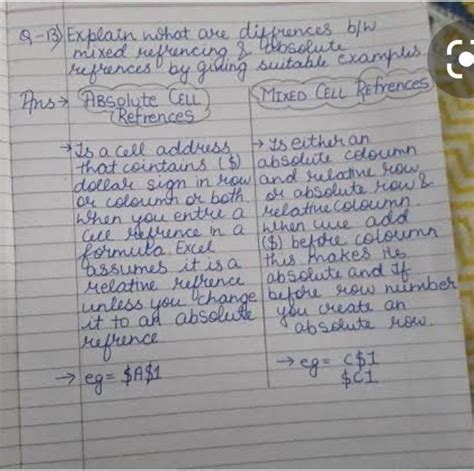 Q-13) Explain what are diffrences b/w
mixed refrencing & absolute
refrences by giving suitable examples.
Ans → Absolute Cell
Refrences
→ Is a cell address
that cointains ($)
dollar sign in row
or coloumn or both
when you entre a
cell refrence in a
formula. Excel
assumes it is a
relative refrence
unless you change
it to an absolute
refrence
→ eg = $A$1
Mixed Cell Refrences
→ Is either an
absolute coloumn
and relative row
or absolute row &
relative coloumn.
When we add
($) before coloumn
this makes its
absolute and If
before row number
you create an
absolute row.
→ eg = C$1
$C1